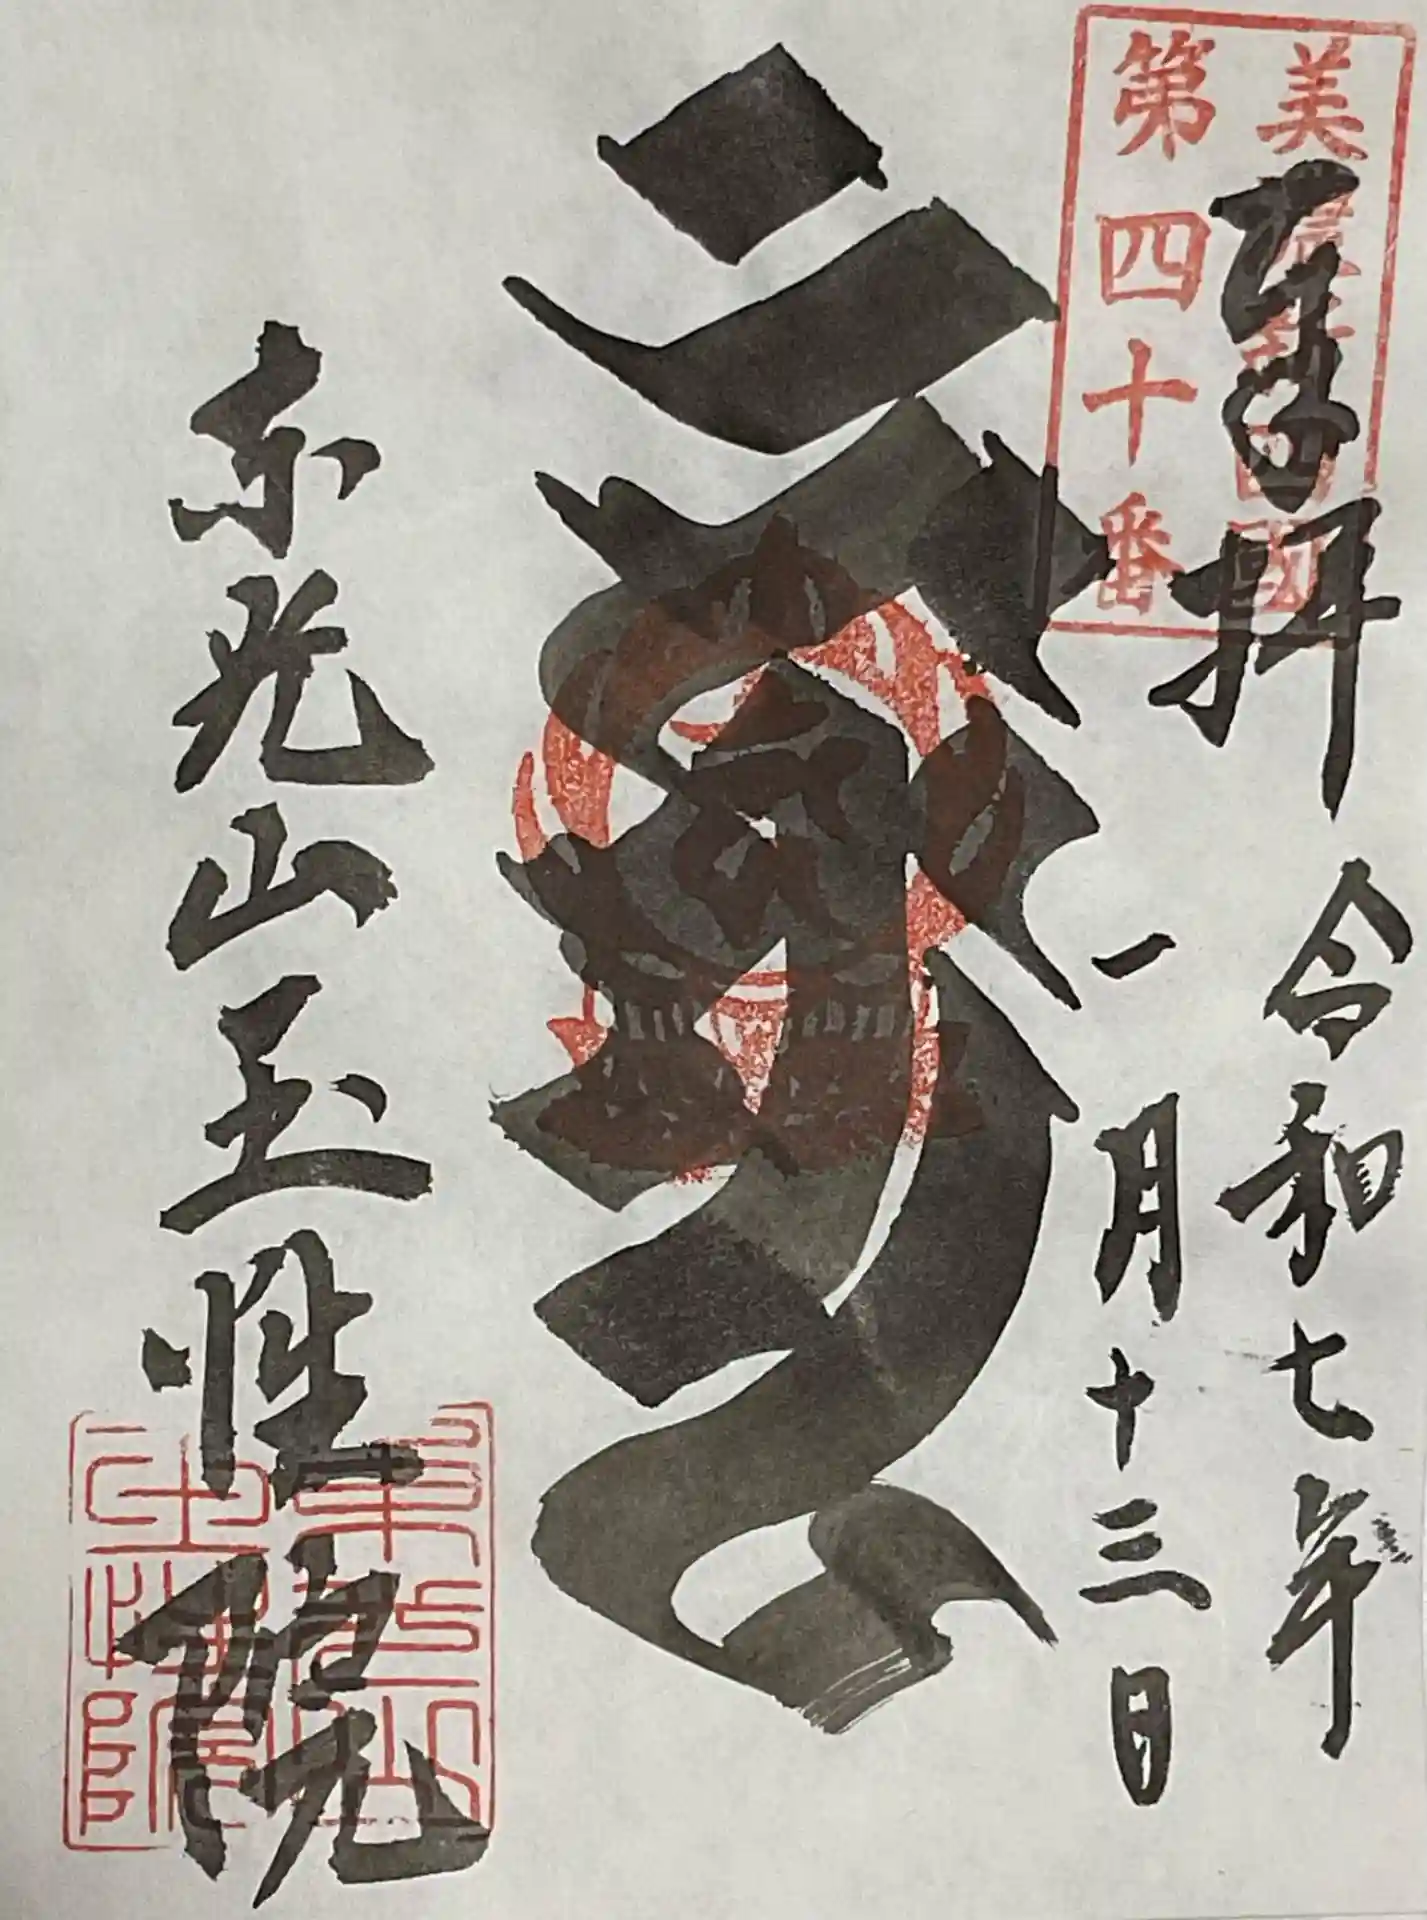 美濃新四國
第四十番
奉拝 令和七年
一月十三日
東光山玉性院
東光山
玉性院